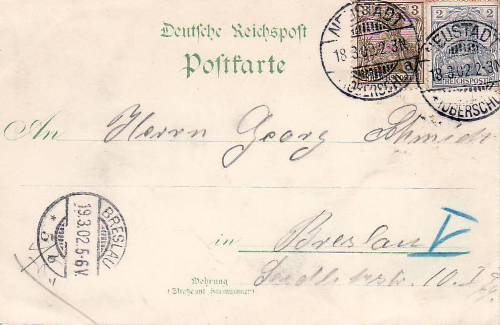 Deutsche Reichspost
Postkarte
3
2
REICHSPOST
NEUSTADT
18.3.02.2-3N.
a
(OBERSCHL)
NEUSTADT
18.3.02.2-3N.
(OBERSCHL)
An Herrn Georg Schmidt
BRESLAU
19.3.02.5-6V.
* 5 b
in Breslau V
Wohnung
(Straße und Hausnummer)
10. I